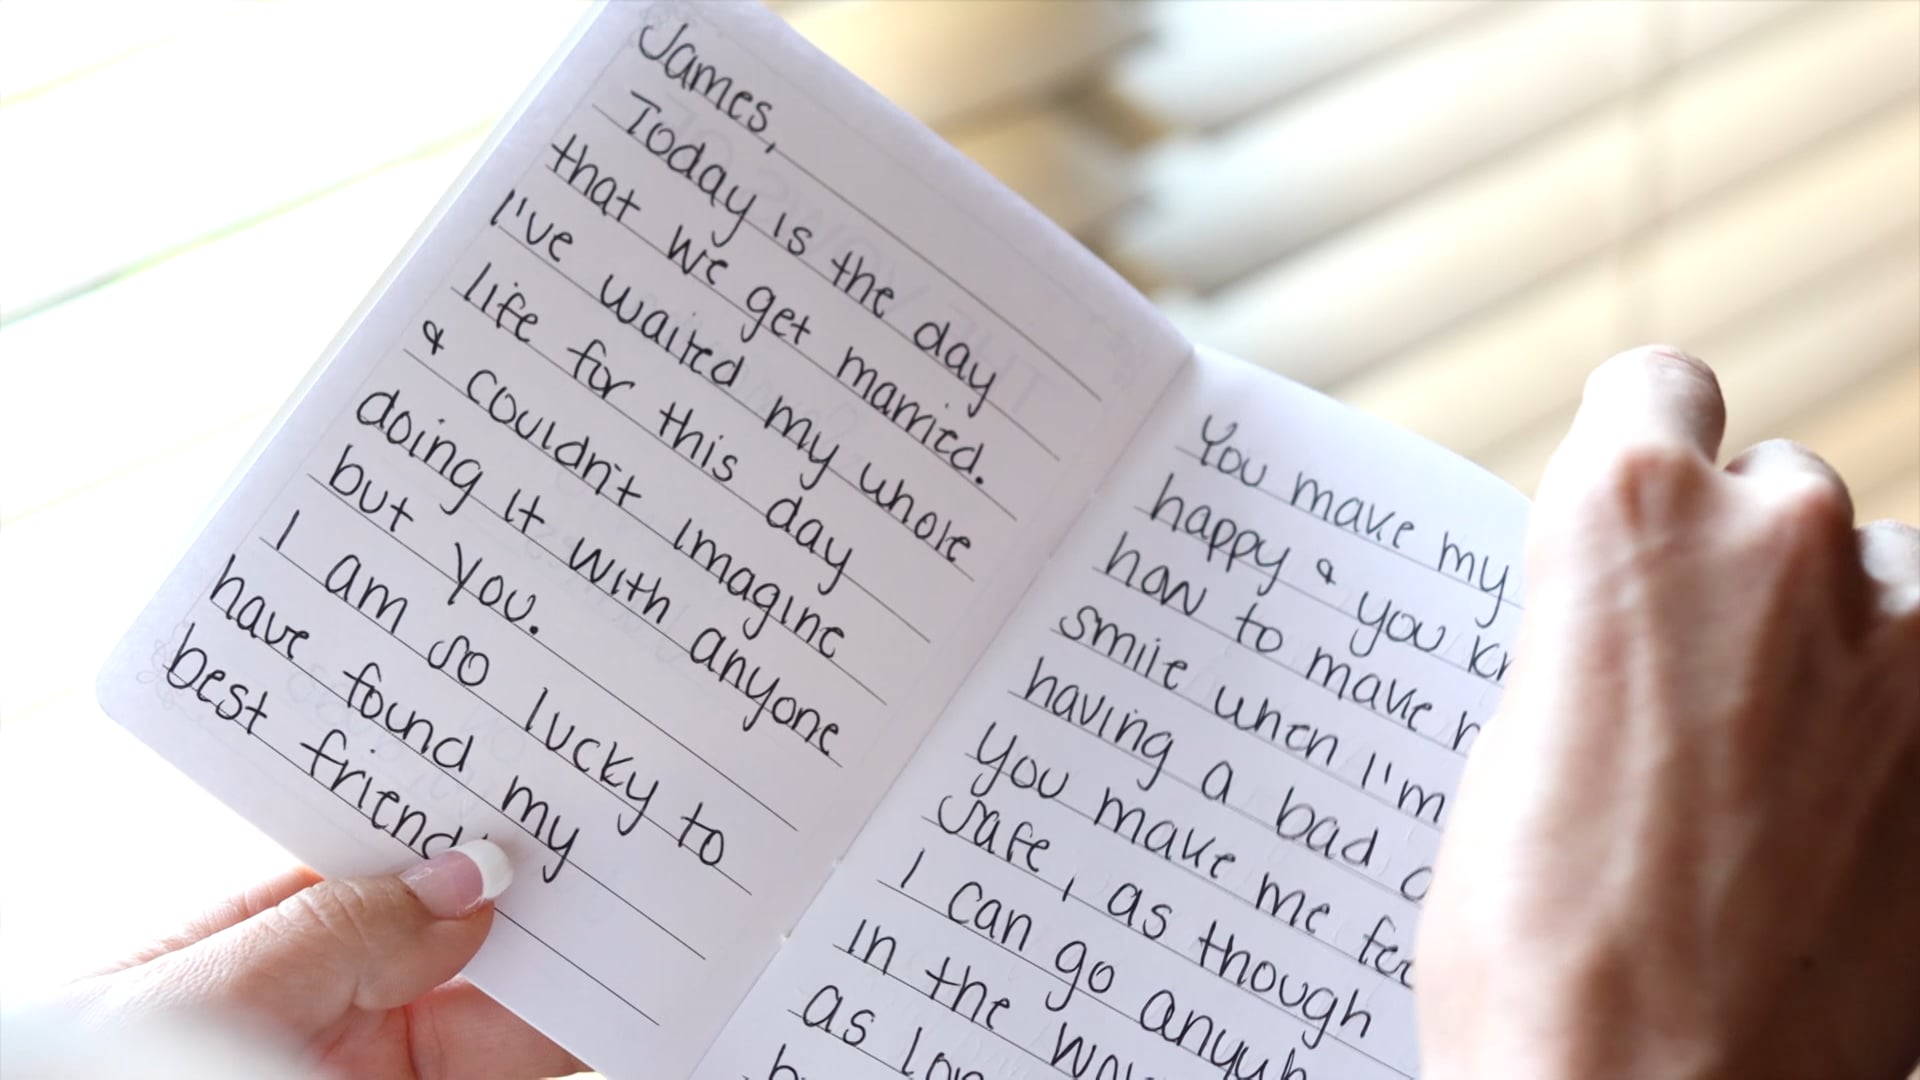 James,
Today is the day
that we get married.
I've waited my whole
life for this day
& couldn't imagine
doing it with anyone
but you.
I am so lucky to
have found my
best friend
You make my
happy & you
how to make
smile when I'm
having a bad
you make me
safe, as though
I can go
in the
as